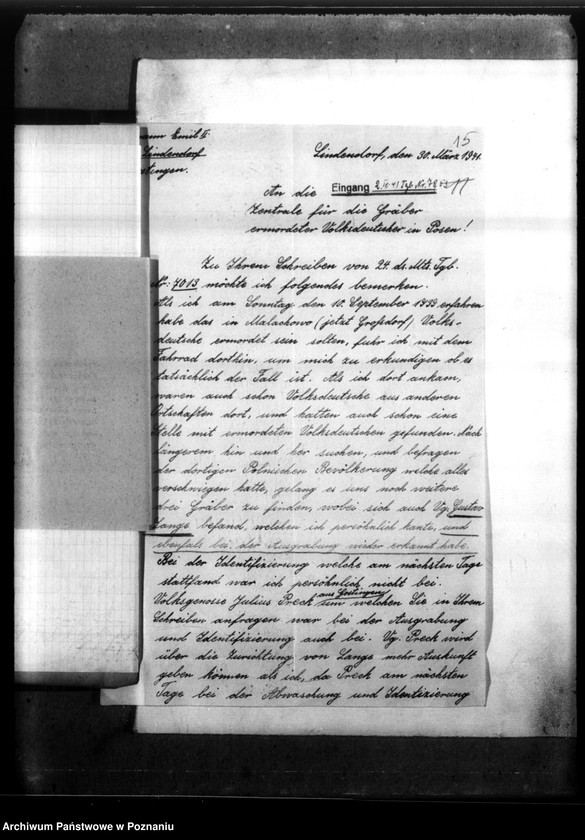 15
mann Emil II.
Lindendorf
Lindendorf, den 30. März 1941.
An die Eingang
Zentrale für die Gräber
ermordeter Volksdeutscher in Posen!
Zu Ihrem Schreiben von 24. ds. Mts. Tgb.
Nr.: 7013 möchte ich folgendes bemerken.
Als ich am Sonntag den 10. September 1939 erfahren
habe das in Malachowo (jetzt Großdorf) Volks-
deutsche ermordet sein sollen, fuhr ich mit dem
Fahrrad dorthin, um mich zu erkundigen ob es
tatsächlich der Fall ist. Als ich dort ankam,
waren auch schon Volksdeutsche aus anderen
Ortschaften dort, und hatten auch schon eine
Stelle mit ermordeten Volksdeutschen gefunden. Nach
längerem hin und her suchen, und befragen
der dortigen Polnischen Bevölkerung welche alles
verschwiegen hatte, gelang es uns noch weitere
drei Gräber zu finden, wobei sich auch Vg. Gustav
Lange befand, welchen ich persöhnlich kante, und
ebenfals bei der Ausgrabung wieder erkannt habe.
Bei der Identifizierung welche am nächsten Tage
stattfand war ich persöhnlich nicht bei.
aus Göstingen
Volksgenosse Julius Preck um welchen Sie in Ihrem
Schreiben anfragen war bei der Ausgrabung
und Identifizierung auch bei. Vg. Preck wird
über die Zurichtung von Lange mehr Auskunft
geben können als ich, da Preck am nächsten
Tage bei der Abwaschung und Identizierung
Archiwum Państwowe w Poznaniu